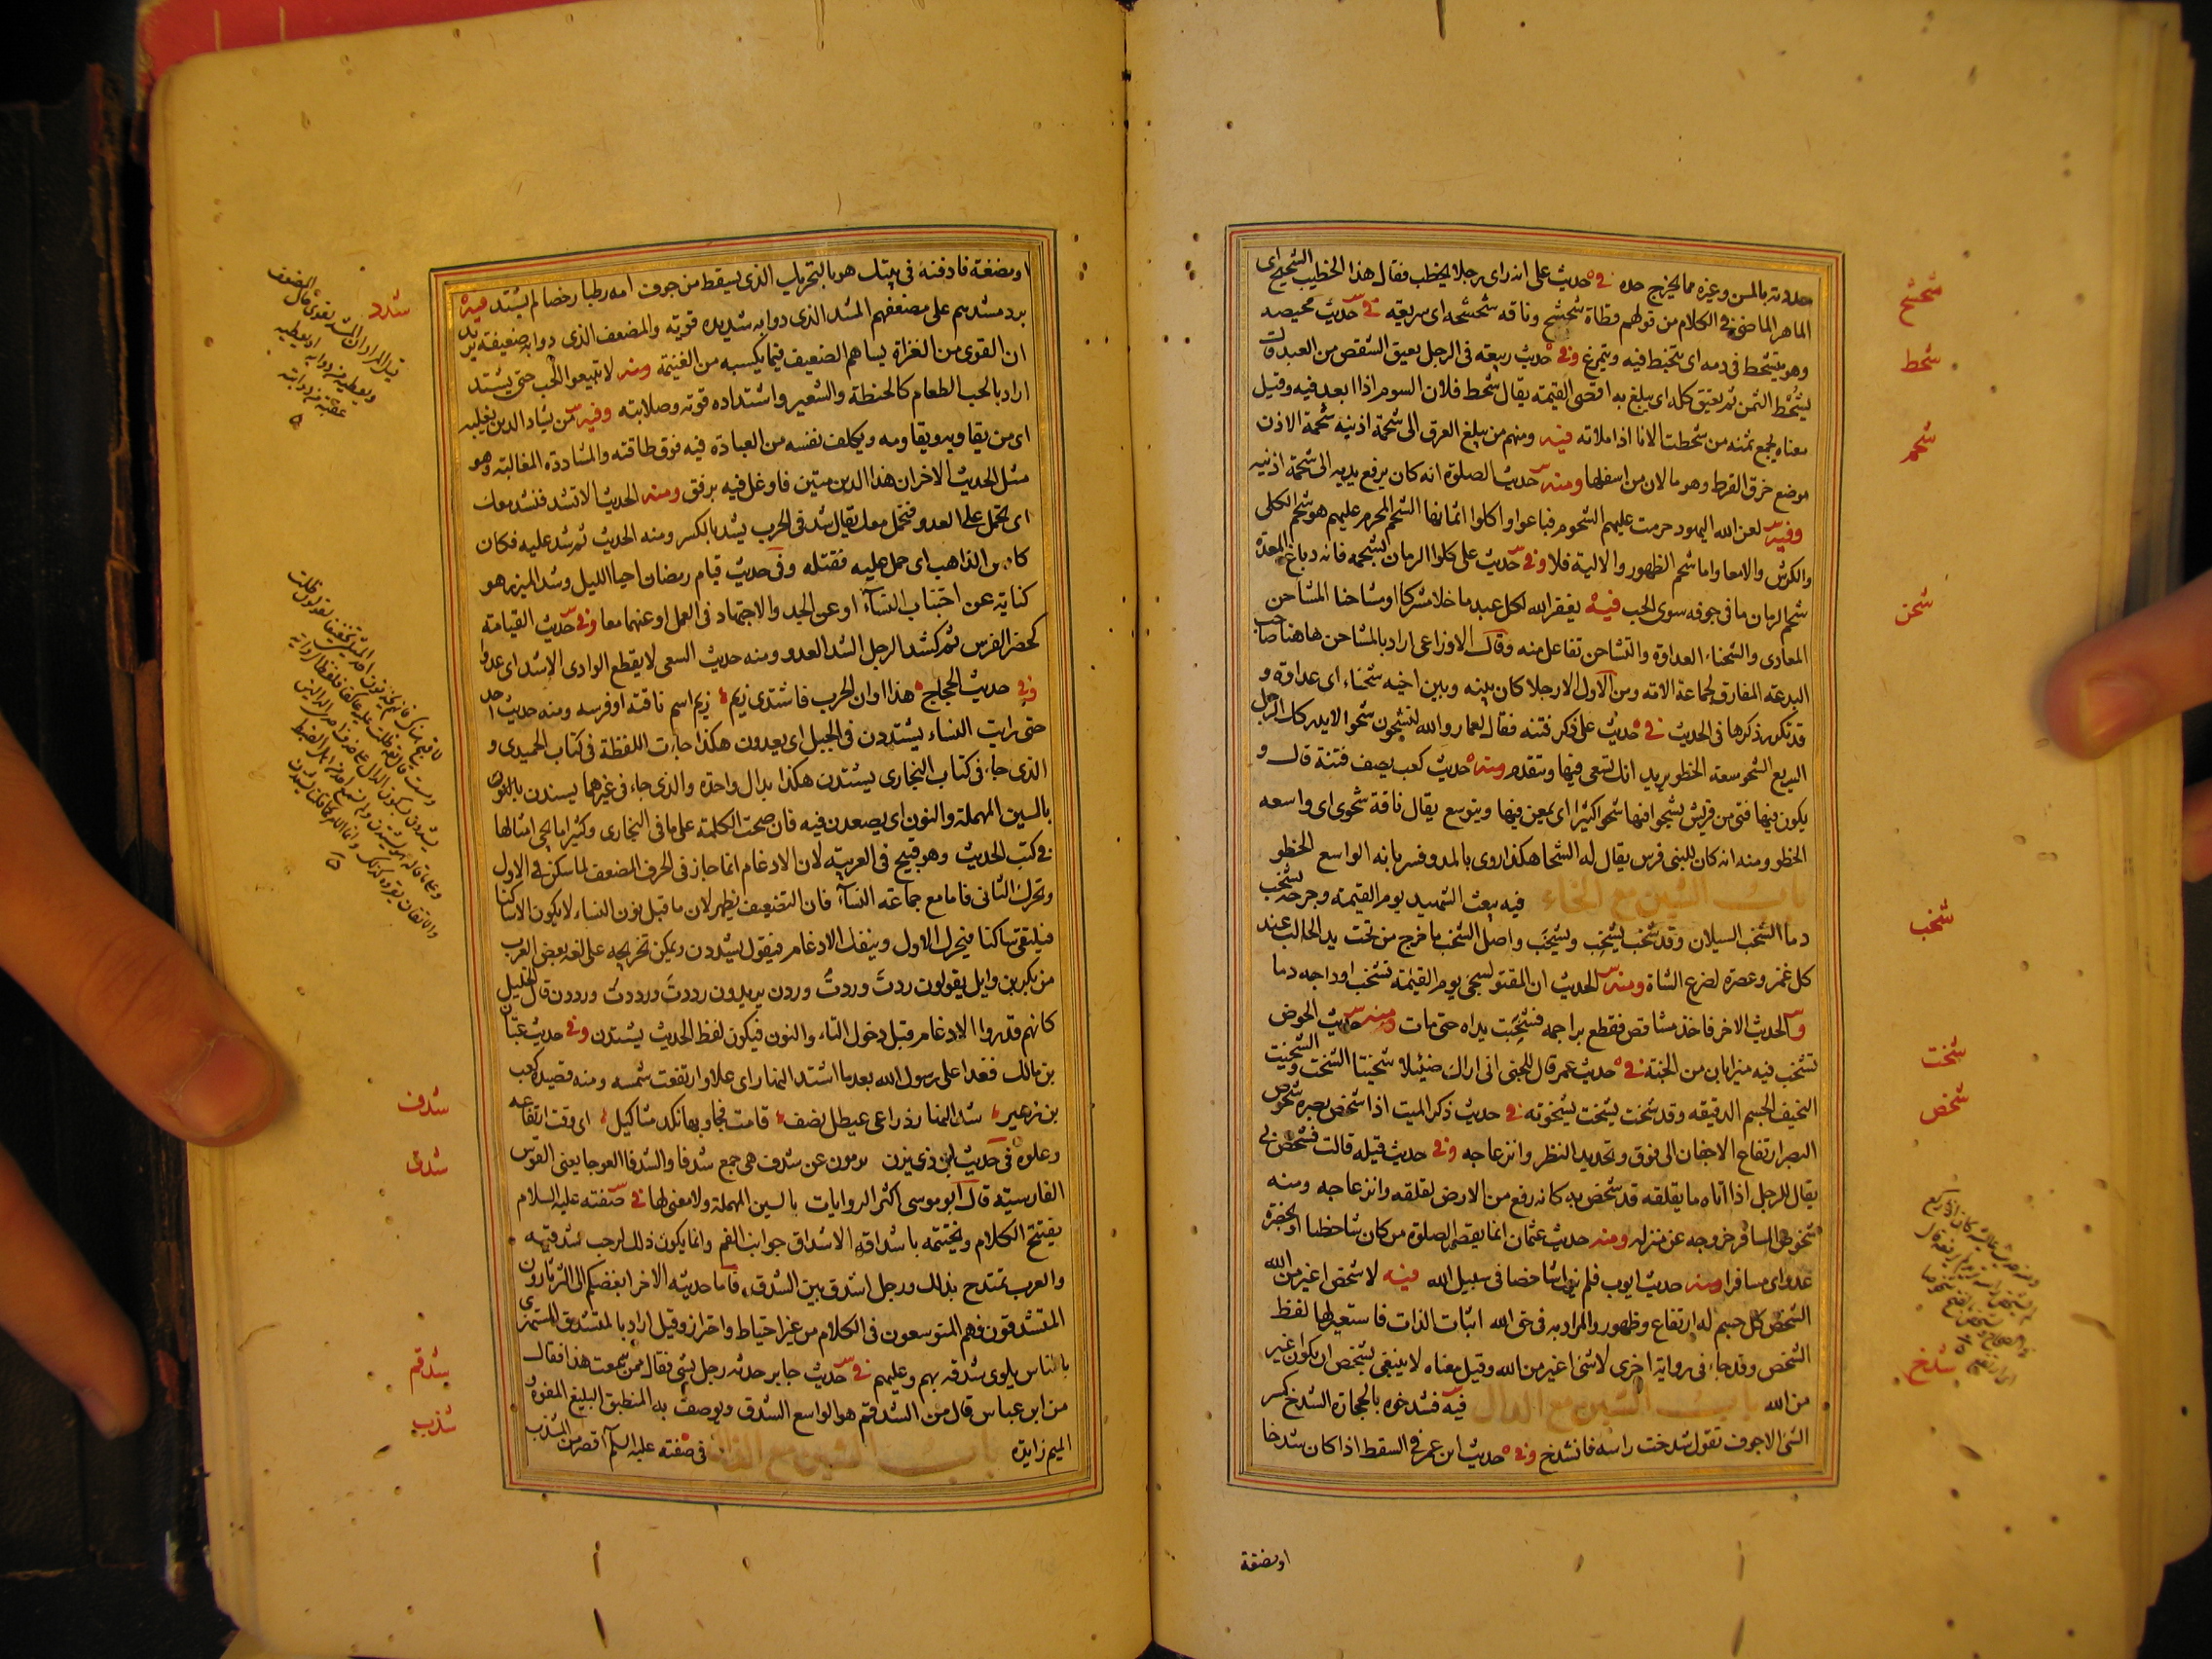 حدد ته بالمسن وغيره مما يخرج حده في حديث على انه راى رجلا يخطب فقال هذا الخطيب الشحشح اى
الماهر الماضى في الكلام من قولهم قطاة شحشح وناقه شحشحه اى سريعه في حديث محيصه
وهو يتشحط فى دمه اى يتخبط فيه ويتمرغ وفي حديث ربيعه فى الرجل يعيق الشقص من العبد قال
يشحط الثمن ثم يعتق كله اى يبلغ به اقصى القيمته يقال شحط فلان السوم اذا ابعد فيه وقيل
معناه يجمع ثمنه من شحطت الانا اذا ملاته فيه ومنهم من يبلغ العرق الى شحمة اذنيه شحمة الاذن
موضع خرق القرط وهو ما لان من اسفلها ومنه حديث الصلوة انه كان يرفع يديه الى شحمة اذنيه
وفيه لعن الله اليهود حرمت عليهم الشحوم فباعوا واكلوا اثمانها الشحم المحرم عليهم هو شحم الكلى
والكرش والامعا واما شحم الظهور والالية فلا وفي حديث على كلوا الرمان بشحمه فانه دباغ المعدة
شحم الرمان ما فى جوفه سوى الحب فيه يغفر الله لكل عبد ما خلا مشركا او مشاحنا المشاحن
المعادى والشحناء العداوة والتشاحن تفاعل منه وقال الاوزاعى اراد بالمشاحن هاهنا صاحب
البدعته المفارق لجماعة الامة ومن الاول الا رجلا كان بينه وبين اخيه شحناء اى عداوة و
قد تكرر ذكرها فى الحديث في حديث على ذكر فتنه فقال لعمار والله لتشحون شحوا لا يدركك الرجل
السريع الشحو سعة الخطو يريد انك تسعى فيها وتتقدم ومنه حديث كعب يصف فتنة قال و
يكون فيها فتى من قريش يشحو فيها شحوا كثيرا اى يمعن فيها ويتوسع يقال ناقة شحوى اى واسعه
الخطو ومنه انه كان للنبى فرس يقال له الشحا هكذا روى بالمد وفسر بانه الواسع الخطو
باب الشين مع الخاء فيه يبعث الشهيد يوم القيمة وجرحه يشخب
دما الشخب السيلان وقد شخب يشخب ويشخب واصل الشخب ما خرج من تحت يد الحالب عند
كل غمزه وعصره لضرع الشاة ومنه الحديث ان المقتول يجى يوم القيمة تشخب اوداجه دما
والحديث الاخر فاخذ مشاقص فقطع براجمه فشخبت يداه حتى مات ومنه حديث الحوض
تشخب فيه ميزابان من الجنة في حديث عمر قال للجنى انى اراك ضئيلا شخيتا الشخت والشخيت
النحيف الجسم الدقيقه وقد شخت يشخت يشخوتة في حديث ذكر الميت اذا شخص بصره شخوص
البصر ارتفاع الاجفان الى فوق وتحديد النظر وانزعاجه وفي حديث قيله قالت فشخص بى
يقال للرجل اذا اتاه ما يقلقه قد شخص به كانه رفع من الارض لقلقه وانزعاجه ومنه
شخوص المسافر خروجه عن منزله ومنه حديث عثمان انما يقصر الصلوة من كان شاخصا او بحضرة
عدو اى مسافرا ومنه حديث ابوب فلم يزل شاخصا فى سبيل الله فيه لا شخص اغير من الله
الشخص كل جسم له ارتفاع وظهور والمراد به فى حق الله اثبات الذات فاستعير لها لفظ
الشخص وقد جاء فى رواية اخرى لا شئ اغير من الله وقيل معناه لا ينبغى لشخص ان يكون اغير
من الله باب الشين مع الدال فيه فشدخوه بالحجارة الشدخ كسر
الشئ الاجوف تقول شدخت راسه فانشدخ وفي حديث ابن عمر في السقط اذا كان شدخا
او مضغة
شحشح
شحط
شحم
شحن
شخب
شخت
شخص
شدخ
او مضغة فادفنه فى بيتك هو بالتحريك الذى يسقط من جوف امه رطبا رخصا لم يشتد فيه
يرد مشدهم على مضعفهم المشد الذى دوابه شديده قوية والمضعف الذى دوابه ضعيفة يريد
ان القوى من الغزاة يساهم الضعيف فيما يكسبه من الغنيمة ومنه لا تبيعوا الحب حتى يشتد
اراد بالحب الطعام كالحنطة والشعير واشتداده قوته وصلابته وفيه من يشاد الدين يغلبه
اى من يقاويه ويقاومه ويكلف نفسه من العبادة فيه فوق طاقته والمشاددة المغالبة وهو
مثل الحديث الاخر ان هذا الدين متين فاوغل فيه برفق ومنه الحديث الا تشد فنشد معك
اى تحمل على العدو فنحمل معك يقال شد فى الحرب يشد بالكسر ومنه الحديث ثم شد عليه فكان
كامس الذاهب اى حمل عليه فقتله وفى حديث قيام رمضان احيا الليل وشد الميزر هو
كناية عن اجتناب النسآء او عن الجد والاجتهاد فى العمل او عنهما معا وفي حديث القيامة
كحضر الفرس ثم كشد الرجل الشد العدو ومنه حديث السعى لا يقطع الوادى الا شدا اى عدوا
وفي حديث الحجاج هذا اوان الحرب فاشتدى زيم زيم اسم ناقته او فرسه ومنه حديث احد
حتى رايت النساء يشتدون فى الجبل اى يعدون هكذا جاءت اللفظة فى كتاب الحميدى و
الذى جاء فى كتاب البخارى يشتدن هكذا بدال واحدة والذى جاء فى غيرهما يسندن بالنون
بالسين المهملة والنون اى يصعدن فيه فان صحت الكلمة على ما فى البخارى وكثيرا ما يجى امثالها
في كتب الحديث وهو قبيح فى العربية لان الادغام انما جاز فى الحرف المضعف لما سكن في الاول
وتحرك الثانى فاما مع جماعة النسآء فان التضعيف يظهر لان ما قبل نون النساء لا يكون الا ساكنا
فيلتقى ساكنا فيحرك الاول وينفك الادغام فيقول يشتددن ويمكن تخريجه على لغة بعض العرب
من بكر بن وايل يقولون ردت وردت وردن يريدون رددت ورددت ورددن قال الخليل
كانهم قدروا الادغام قبل دخول التاء والنون فيكون لفظ الحديث يشتدن وفي حديث عتبان
بن مالك فغدا على رسول الله بعد ما اشتد النهار اى علا وارتفعت شمسه ومنه قصيد كعب
بن زهير شد النهار ذراعى عيطل نصف قامت فجاوبها نكد مثاكيل اى وقت ارتفاعه
وعلوه فى حديث ابن ذى يزن يرمون عن شدف هى جمع شدفا والشدفا العوجا يعنى القوس
الفارسية قال ابو موسى اكثر الروايات بالسين المهملة ولا معنى لها في صفته عليه السلام
يفتتح الكلام ويختتمه باشداقه الاشداق جوانب الفم وانما يكون ذلك لرحب شدقيه
والعرب تمتدح بذلك ورجل اشدق بين الشدق فاما حديثه الاخر ابغضكم الى الثرثارون
المتشدقون فهم المتوسعون فى الكلام من غير احتياط واحتراز وقيل اراد بالمتشدق المستهزى
بالناس يلوى شدقه بهم وعليهم في حديث جابر حدثه رجل بشئ فقال ممن سمعت هذا فقال
من ابن عباس قال من الشدقم هو الواسع الشدق ويوصف به المنطيق البليغ المفوه و
الميم زايدة باب الشين مع الذال فى صفته عليه السلم اقصر من المشذب
شدد
شدف
شدق
شدقم
شذب